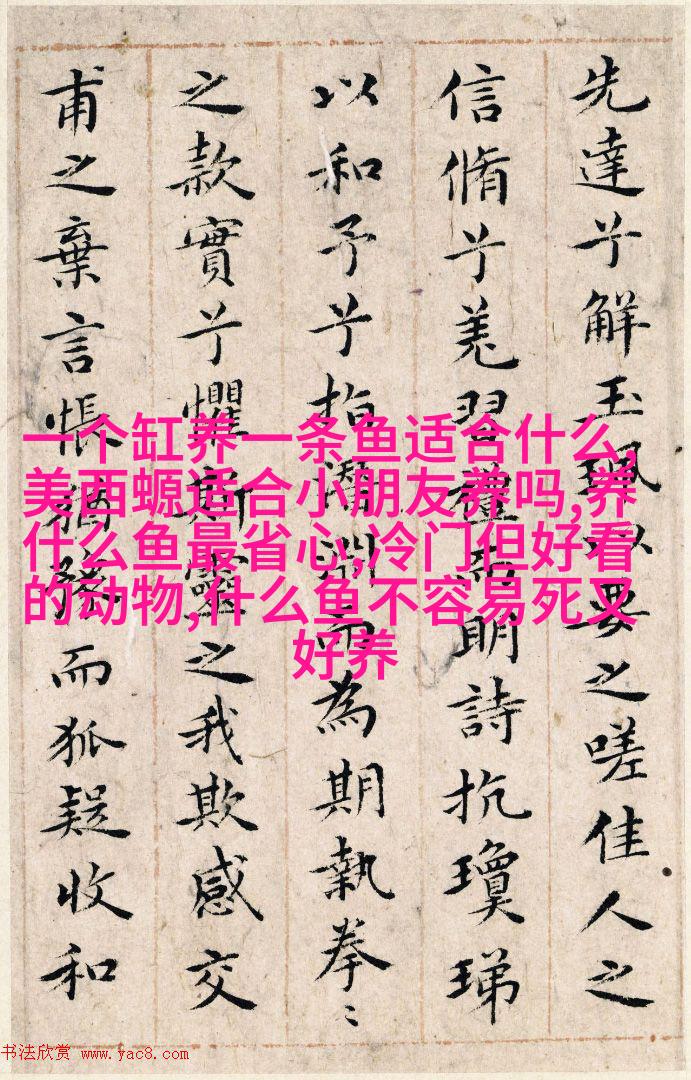 先達兮解玉珮以要之嗟佳人之
信脩兮羌習禮而明詩抗瓊珶
以和予兮指潛淵而為期執拳〻
之款實兮懼斯靈之我欺感交
甫之棄言悵猶豫而狐疑收和
一个缸养一条鱼适合什么,
美西螈适合小朋友养吗,养
什么鱼最省心,冷门但好看
的动物,什么鱼不容易死又
好养
书法欣赏 www.yac8.com